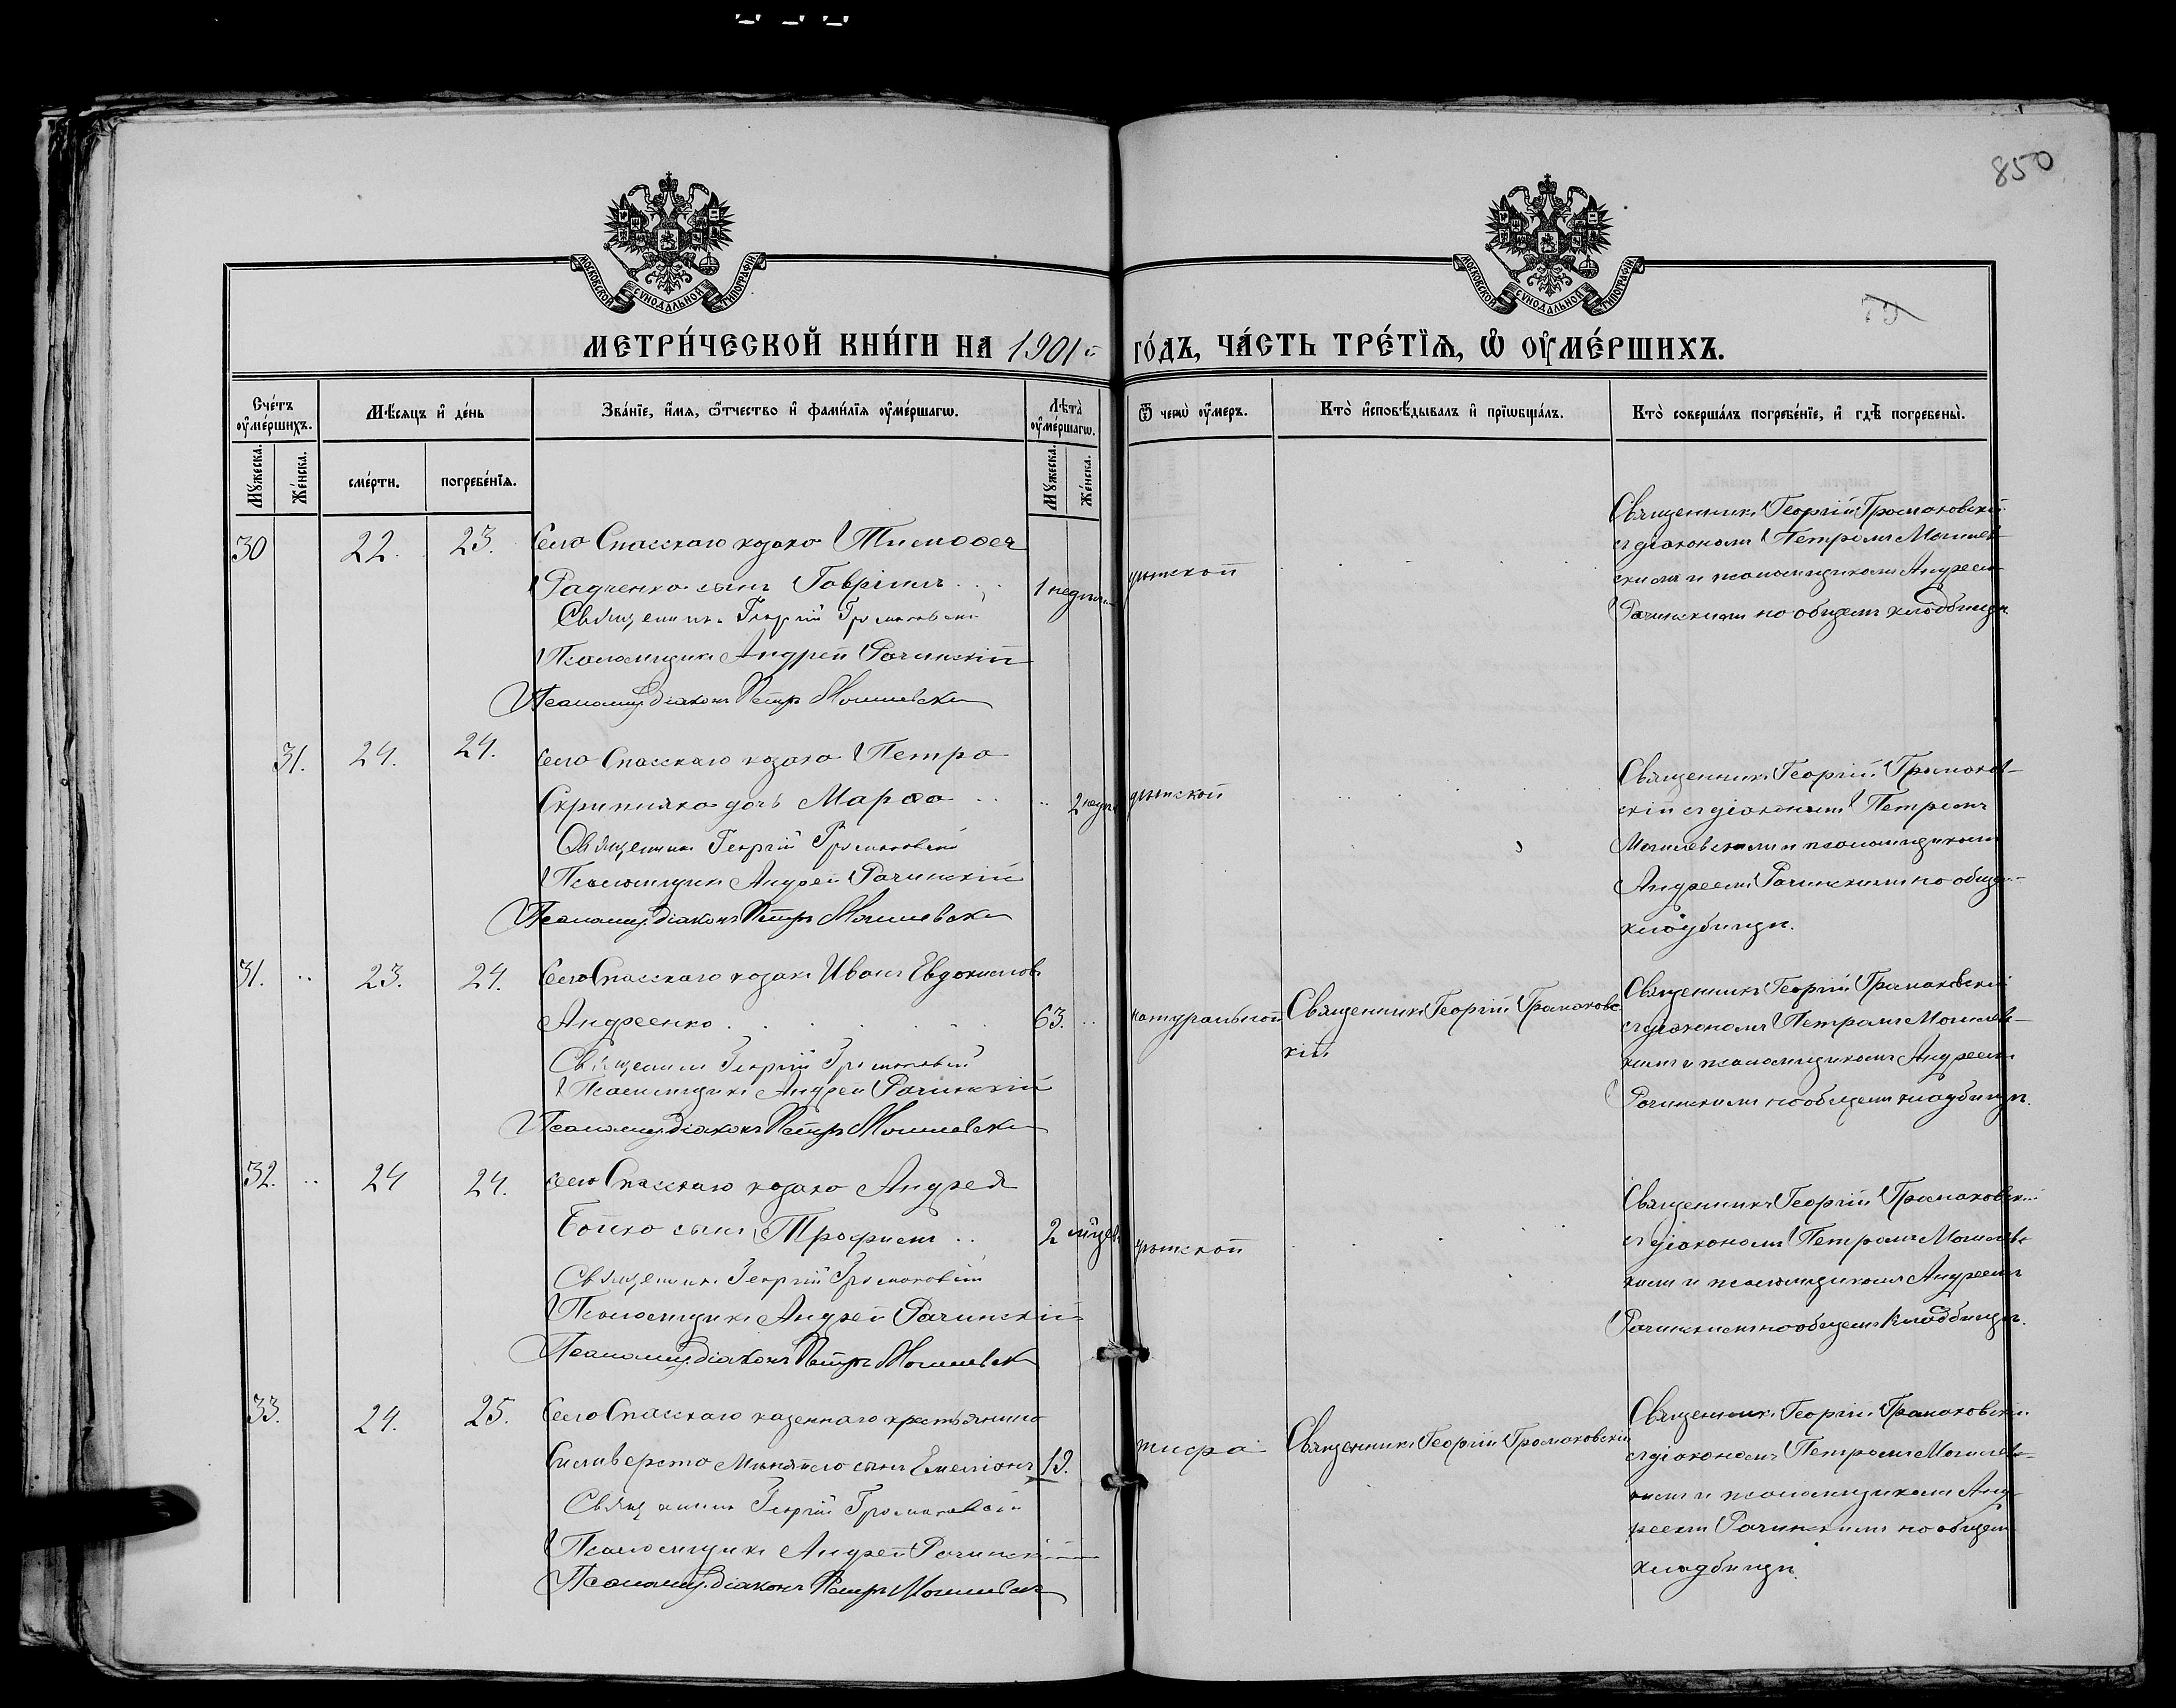 850
79
МОСКОВСКОЙ СѴНОДАЛЬНОЙ ТИПОГРАФІИ
МОСКОВСКОЙ СѴНОДАЛЬНОЙ ТИПОГРАФІИ
МЕТРИ́ЧЕСКОЙ КНИ́ГИ НА 1901й ГО́ДЪ, ЧА́СТЬ ТРЕ́ТЇѦ, Ѡ ОУМЕ́РШИХЪ.
Сче́тъ оуме́ршихъ.
Мꙋжеска.
Же́нска.
Мѣсяцъ и де́нь
сме́рти.
погребе́нїѧ.
Зва́нїе, и́мѧ, ѿтчество и фами́лїѧ оуме́ршагѡ.
Лѣта̀ оуме́ршагѡ.
Мꙋжеска.
Же́нска.
Ѿ чегѡ̀ оу́меръ.
Кто̀ исповѣдывалъ и прїѡбща́лъ.
Кто̀ соверша́лъ погребе́нїе, и гдѣ погребены̀.
30 22. 23. Села Спасскаго козака Тимофея
Радченка сынъ Гавріилъ 1 недѣли дѣтской
Священникъ Георгій Громаковскій
Псаломщикъ Андрей Рачинскій
Псаломщ. діаконъ Петръ Могилевскій
Священникъ Георгій Громаковскій
съ діакономъ Петромъ Могилев-
скимъ и псаломщикомъ Андреемъ
Рачинскимъ на общемъ кладбищѣ
31. 24. 24. Села Спасскаго козака Петра
Скрипняка дочь Марѳа 2 недѣл дѣтской
Священникъ Георгій Громаковскій
Псаломщикъ Андрей Рачинскій
Псаломщ. діаконъ Петръ Могилевскій
Священникъ Георгій Громаков-
скій съ діакономъ Петромъ
Могилевскимъ и псаломщикомъ
Андреемъ Рачинскимъ на общемъ
кладбищѣ.
31. 23. 24. Села Спасскаго козакъ Иванъ Евдокимовъ
Андреенко 63. натуральной Священникъ Георгій Громаковс
кій
Священникъ Георгій Громаковскій
Псаломщикъ Андрей Рачинскій
Псаломщ. діаконъ Петръ Могилевскій
Священникъ Георгій Громаковскій
съ діакономъ Петромъ Могилев-
кимъ и псаломщикомъ Андреемъ
Рачинскимъ на общемъ кладбищѣ.
32. 24 24. Села Спасскаго козака Андрея
Бойко сынъ Трофимъ 2 мѣсяц дѣтской
Священникъ Георгій Громаковскій
Псаломщикъ Андрей Рачинскій
Псаломщ. діаконъ Петръ Могилевскій
Священникъ Георгій Громаковскій
съ діакономъ Петромъ Могилевс
кимъ и псаломщикомъ Андреемъ
Рачинскимъ на общемъ кладбищѣ.
33. 24. 25. Села Спасскаго казеннаго крестьянина
Силиверста сынъ Емеліанъ 19. тифа Священникъ Георгій Громаковскій
Священникъ Георгій Громаковскій
Псаломщикъ Андрей Рачинскій
Псаломщ. діаконъ Петръ Могилевскій
Священникъ Георгій Громаковскій
съ діакономъ Петромъ Могилев-
кимъ и псаломщикомъ Анд-
реемъ Рачинскимъ на общемъ
кладбищѣ.